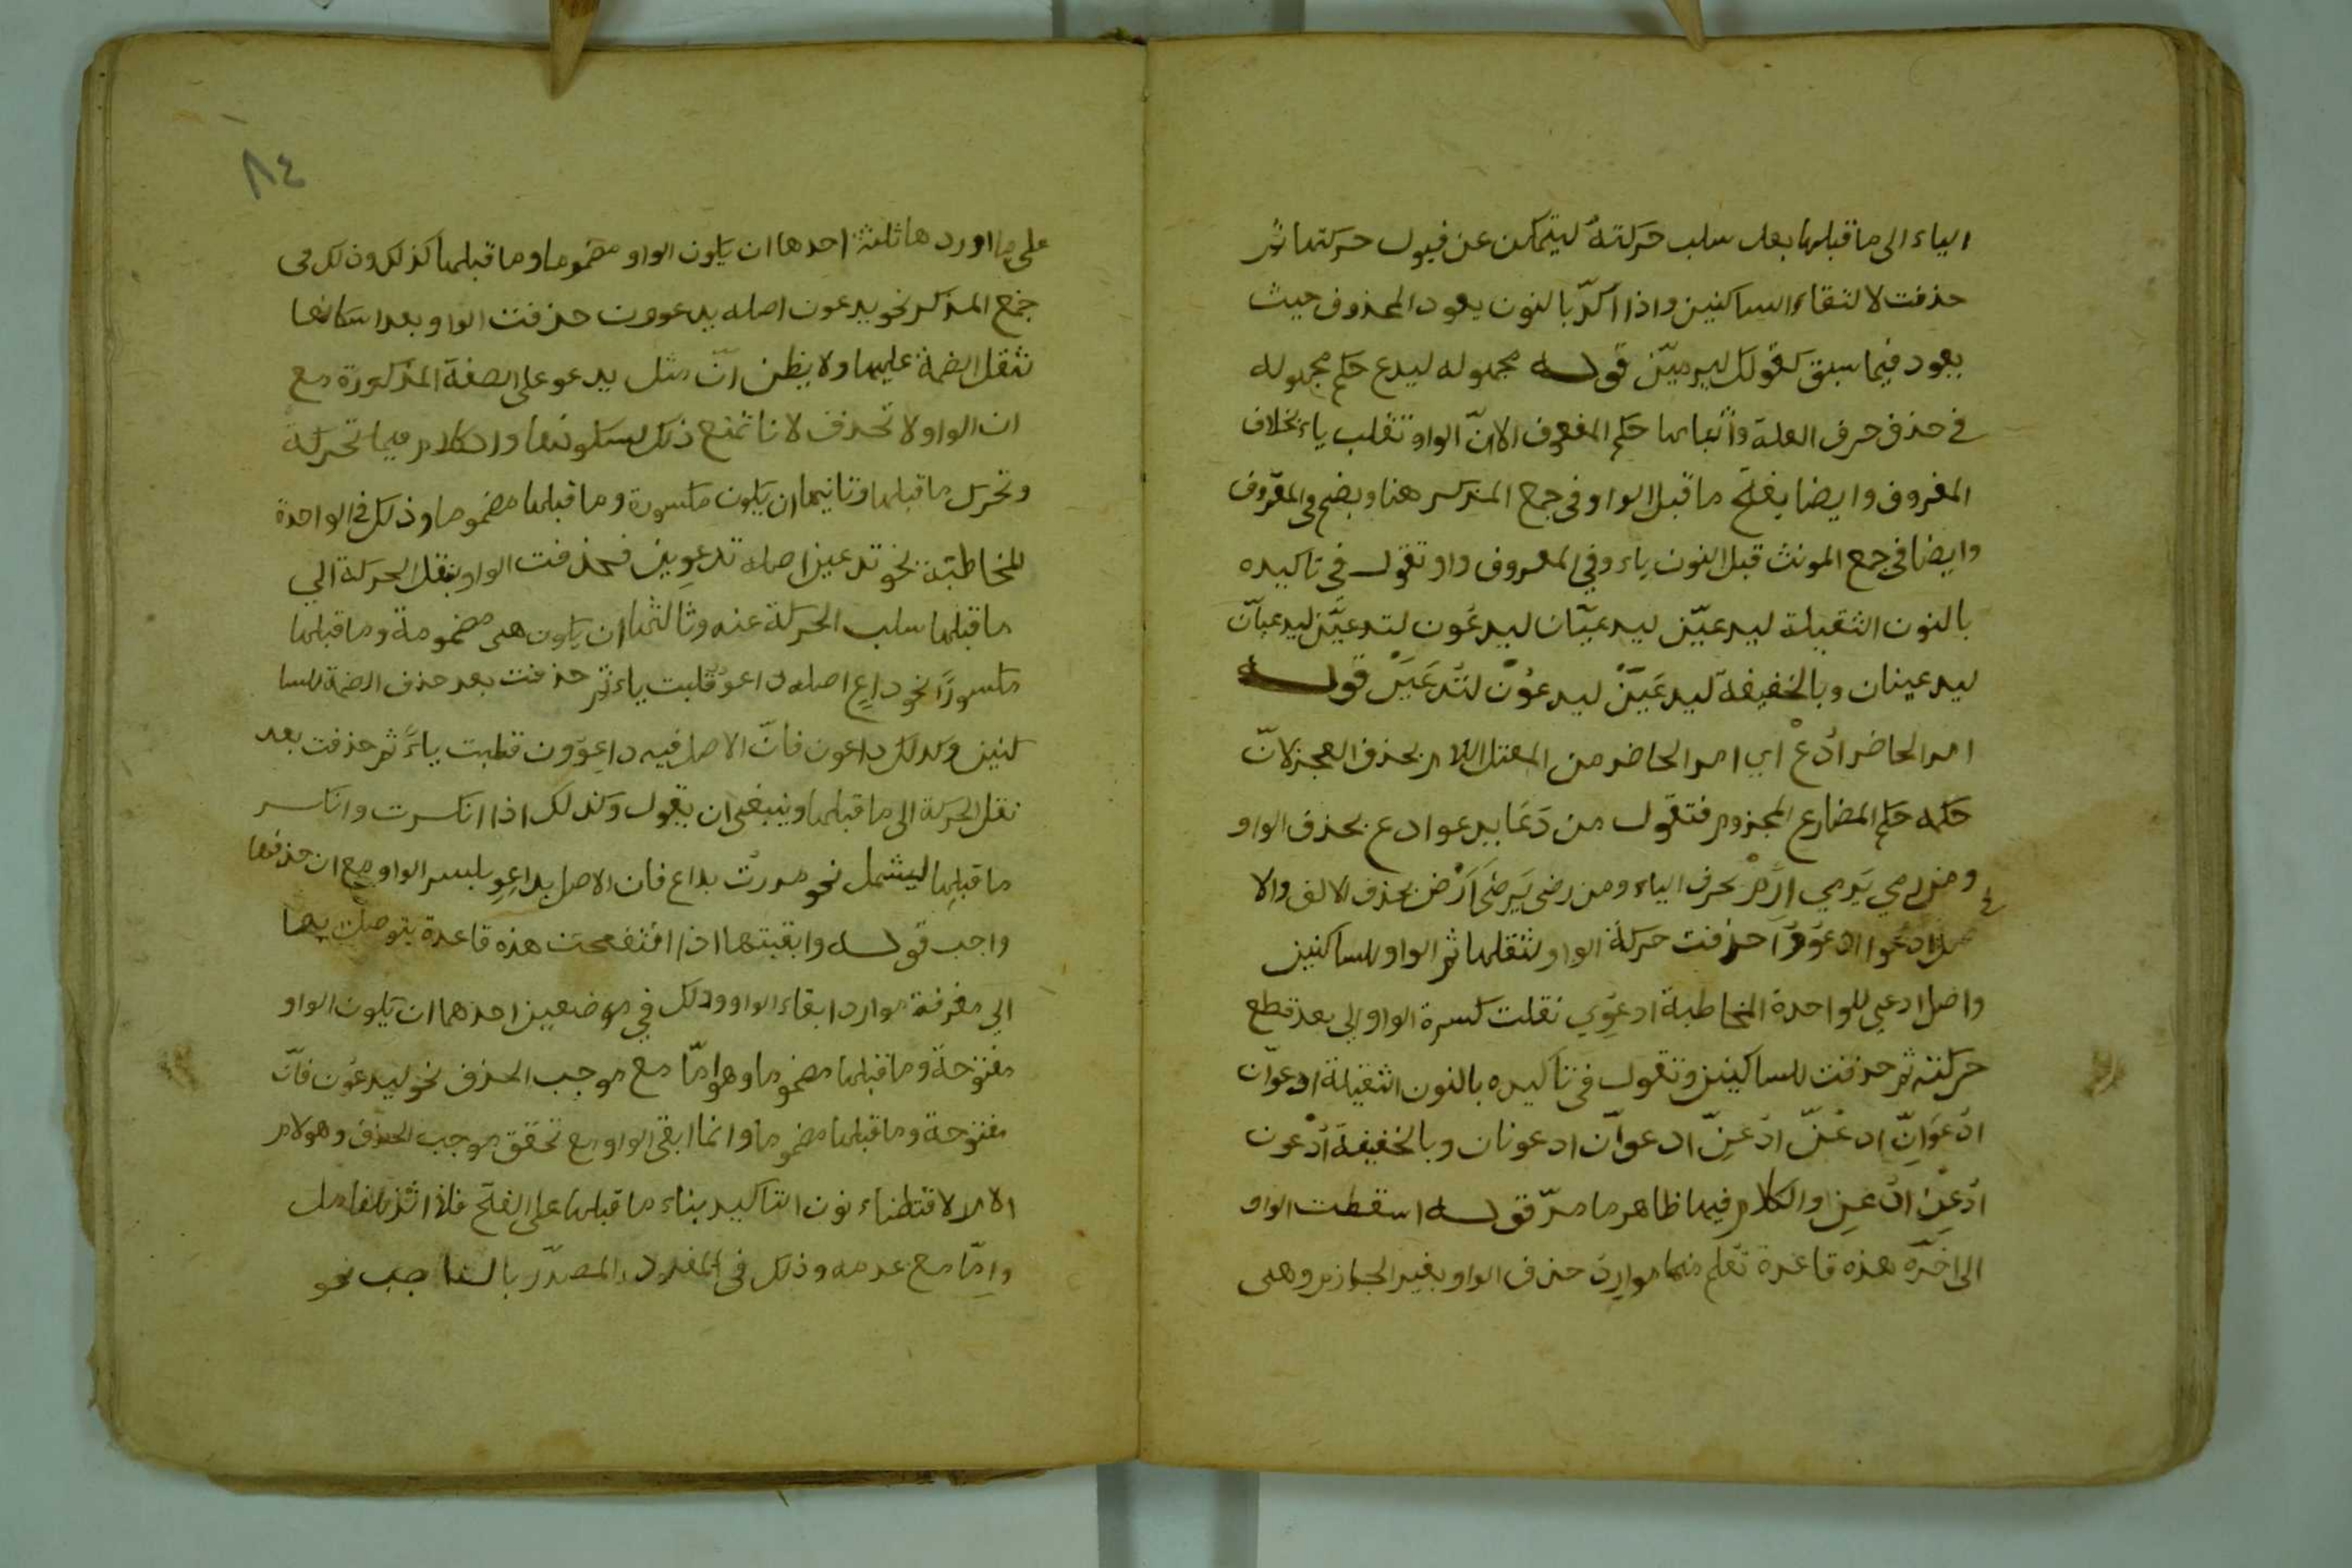 الياء الى ما قبلها بعد سلب حركته ليتمكن عن قبول حركتها ثم
حذفت لالتقاء الساكنين واذا اكدّ بالنون يعود المحذوف حيث
يعود فيما سبق كقولك ليرمينّ قوله مجهوله ليدع حكم مجهوله
في حذف حرف العلة واثباتها حكم المعروف الا انّ الواو تقلب ياء بخلاف
المعروف وايضا يفتح ما قبل الواو في جمع المذكر هنا ويضم في المعروف
وايضا في جمع المونث قبل النون ياء وفي المعروف واو تقول في تاكيده
بالنون الثقيلة ليدعيّن ليدعيّان ليدعوُن لتدعيّن ليدعيانّ
ليدعينان وبالخفيفة ليدعَيَنْ ليدعوُنْ لتُدعَيَنْ قوله
امر الحاضر اُدعُ اي امر الحاضر من المعتل اللام بحذف العجز لانّ
حكمه حكم المضارع المجزوم فتقول من دَعَا يدعو ادع بحذف الواو
ومن رمي يَرمي اِرْمِ بحرف الياء ومن رضى يَرضَى اَرْض بحذف الالف والا
صل ادعوا ادعُوُوا حذفت حركة الواو لثقلها ثم الواو للساكنين
واصل ادعي للواحدة المخاطبة ادعوِي نقلت كسرة الواو الى بعد قطع
حركته ثم حذفت للساكنين وتقول في تاكيده بالنون الثقيلة ادعوانّ
ادْعُوَانِّ ادعُنّ ادْعِنّ ادعوانّ ادعونان وبالخفيفة اُدْعون
اُدْعُنْ ادْعِنْ والكلام فيها ظاهر مما مرّ قوله اسقطت الواو
الى اخره هذه قاعدة تعلم منها موارد حذف الواو بغير الجوازم وهى
٨٤
على ما اوردها ثلثة احدها ان يكون الواو مضموما وما قبلها كذلك وذلك في
جمع المذكر نحو يدعون اصله يدعوون حذفت الواو بعد اسكانها
لثقل الضمة عليها ولا يظن انّ مثل يدعو على الصفة المذكورة مع
ان الواو لا تحذف لانا نمنع ذلك لسكونها والكلام فيما تحركة
وتحرك ما قبلها وثانيها ان يكون مكسورة وما قبلها مضموما وذلك في الواحدة
المخاطبة نحو تدعين اصله تدعوِين فحذفت الواو بنقل الحركة الي
ما قبلها سلب الحركة عنه وثالثها ان يكون هى مضمومة وما قبلها
مكسورًا نحو داعٍ اصله داعوٌ قلبت ياء ثم حذفت بعد حذف الضمة للسا
كنين وكذلك داعون فانّ الاصل فيه داعِوُون قلبت ياءً ثم حذفت بعد
نقل الحركة الى ما قبلها وينبغى ان يقول وكذلك اذا انكسرت وانكسر
ما قبلها ليشمل نحو مررت بداع فان الاصل بداعِوِ بكسر الواو مع ان حذفها
واجب قوله وابقيتها اذا انفتحت هذه قاعدة يتوصل بها
الي معرفة موارد ابقاء الواو وذلك في موضعين احدهما ان يكون الواو
مفتوحة وما قبلها مضموما وهو امّا مع موجب الحذف نحو ليدعُوَن فانّ
مفتوحة وما قبلها مضموما وانما ابقى الواو مع تحقق موجب الحذف وهو لام
الامر لاقتضاء نون التاكيد بناء ما قبلها على الفتح
وامّا مع عدمه وذلك في المفرد المصدّر بالناصب نحو